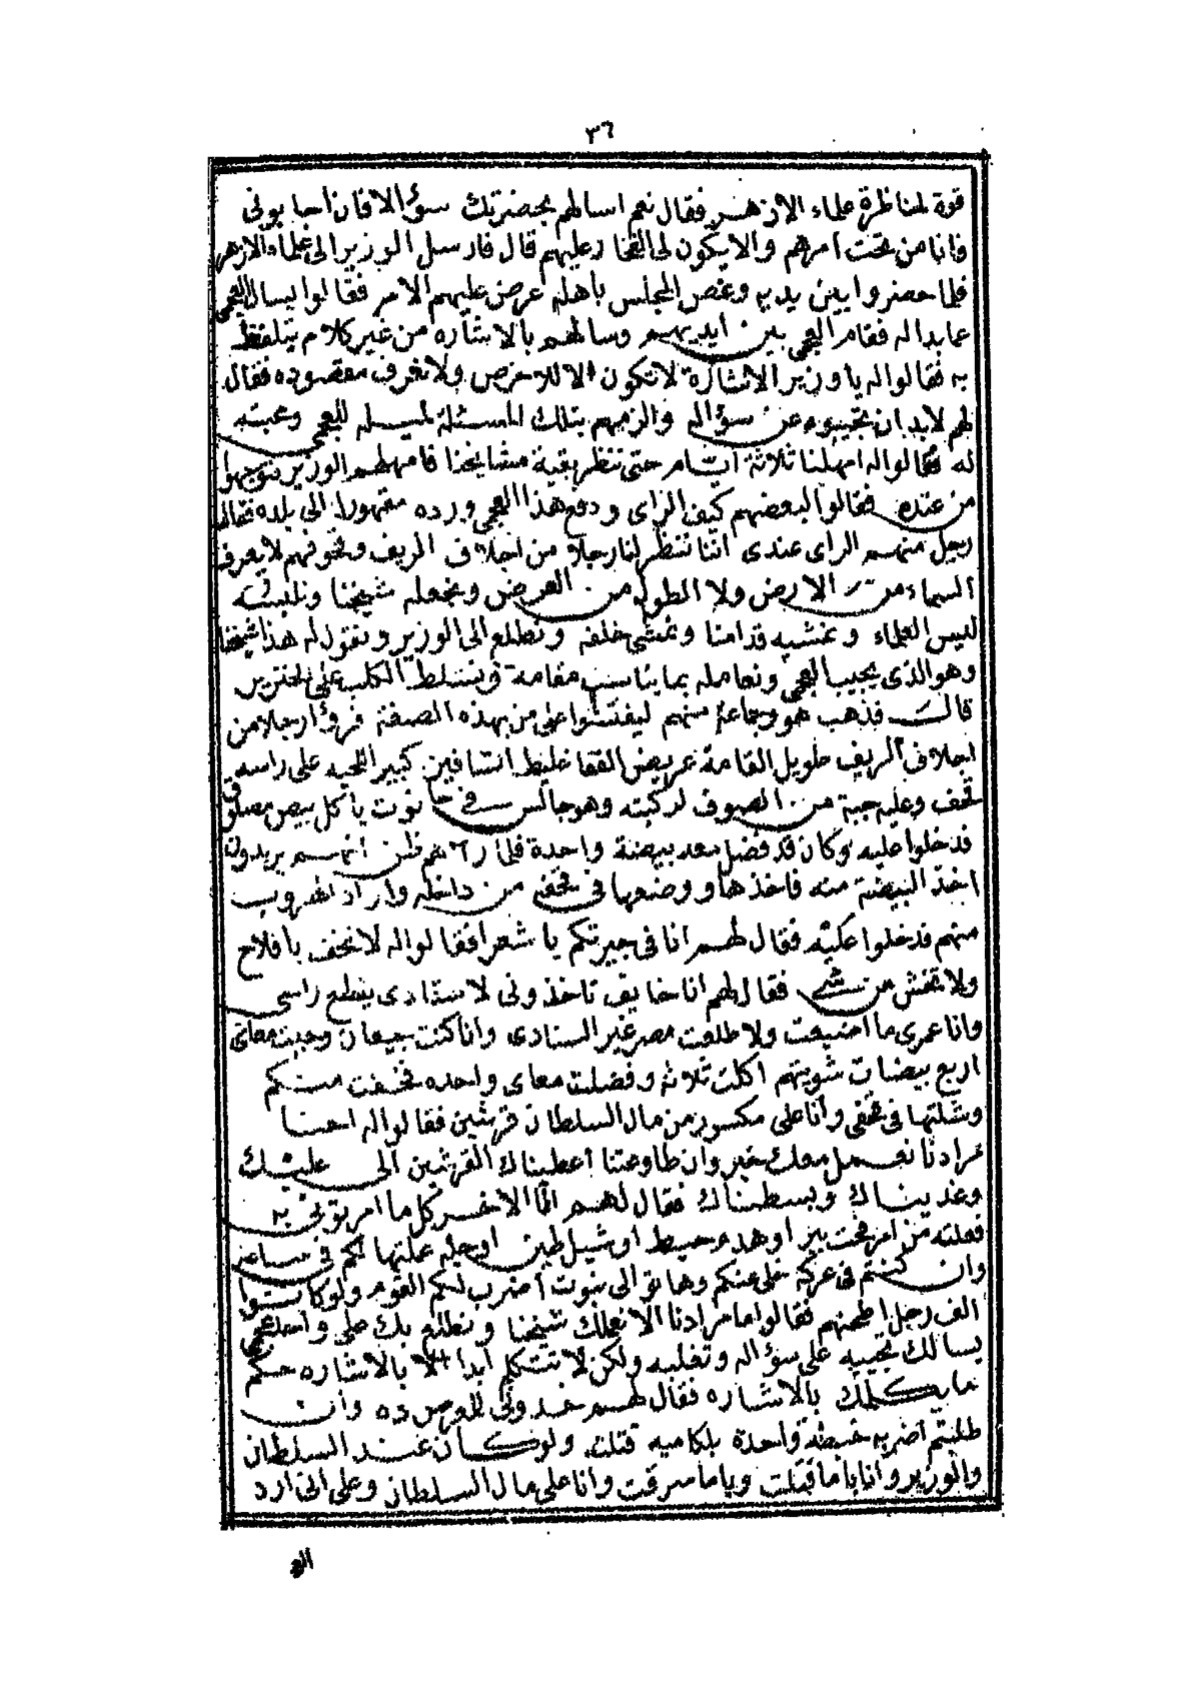 ٣٦
قوة لمناظرة علماء الازهر فقال نعم اسالهم بحضرتك سؤالا فان اجابونى
فانا من تحت امرهم والا يكون لى الفخار عليهم قال فارسل الوزير الى علماء الازهر
فلما حضروا بين يديه وغص المجلس باهله عرض عليهم الامر فقالوا ليسال العجمى
عما بدا له فقام العجمى بين ايديهم وسالهم بالاشاره من غير كلام يتلفظ
به فقالوا له يا وزير الاشارة لا تكون الا للاخرص ولا نعرف مقصوده فقال
لهم لابد ان تجيبوه عن سؤاله والزمهم بتلك المسئلة لميله للعجمى ومحبته
له فقالوا له امهلنا ثلاثة ايام حتى ننظر بقية مشايخنا فامهلهم الوزير فتوجهوا
من عنده فقالوا لبعضهم كيف الراى ودفع هذا العجمى ورده مقهورا الى بلده فقال
رجل منهم الراى عندى اننا ننظر لنا رجلا من اجلاف الريف وقحوفهم لا يعرف
السماء من الارض ولا الطول من العرض ونجعله شيخنا ونلبسه
لبس العلماء ونمشيه قدامنا ونمشى خلفه ونطلع الى الوزير ونقول له هذا شيخنا
وهو الذى يجيب العجمى ونعامله بما يناسب مقامه ونسلط الكلب على الخنزير
قال فذهب هو وجماعة منهم ليفتشوا على من بهذه الصفة فرؤا رجلا من
اجلاف الريف طويل القامة عريض القفا غليظ الساقين كبير اللحيه على راسه
قحف وعليه جبة من الصوف لركبته وهو جالس فى حانوت ياكل بيض مصلوق
فدخلوا عليه وكان قد فضل معه بيضة واحدة فلما رآهم ظن انهم يريدون
اخذ البيضة منه فاخذها ووضعها فى قحفه من داخله واراد الهروب
منهم فدخلوا عليه فقال لهم انا فى جيرتكم يا شعرا فقالوا له لا تخف يا فلاح
ولا تخش من شى فقال لهم انا خايف تاخذونى لاستادى يقطع راسى
وانا عمرى ما ولا طلعت مصر غير السنادى وانا كنت جيعان وجبت معاى
اربع بيضات شويتهم اكلت ثلاثه وفضلت معاى واحده فخفت منكم
وشلتها فى قحفى وانا على مكسور من مال السلطان قرشين فقالوا له احنا
مرادنا نعمل معك خير وان طاوعتنا اعطيناك القرشين الى عليك
وغديناك وبسطناك فقال لهم انا الاخر كل ما امرتونى به
فعلته من امر فحت بير او هده حيط او شيل طين او جله عملتها لكم فى ساعه
وان كنتم فى عركه على عنكم وهاتو الى نبوت اضرب لكم القوم ولو كانوا
الف رجل اطحنهم فقالوا ما مرادنا الا نعملك شيخنا ونطلع بك على واحد عجمى
يسالك تجيبه على سؤاله وتغلبه ولكن لا تتكلم ابدا الا بالاشاره حكم
ما يكلمك بالاشاره فقال لهم خدونى للعرص ده وان
طلبتم اضربه خبطه واحدة بلكاميه قتلته ولو كان عند السلطان
والوزير وانا ياما قتلت وياما سرقت وانا على مال السلطان وعلى الى ارد